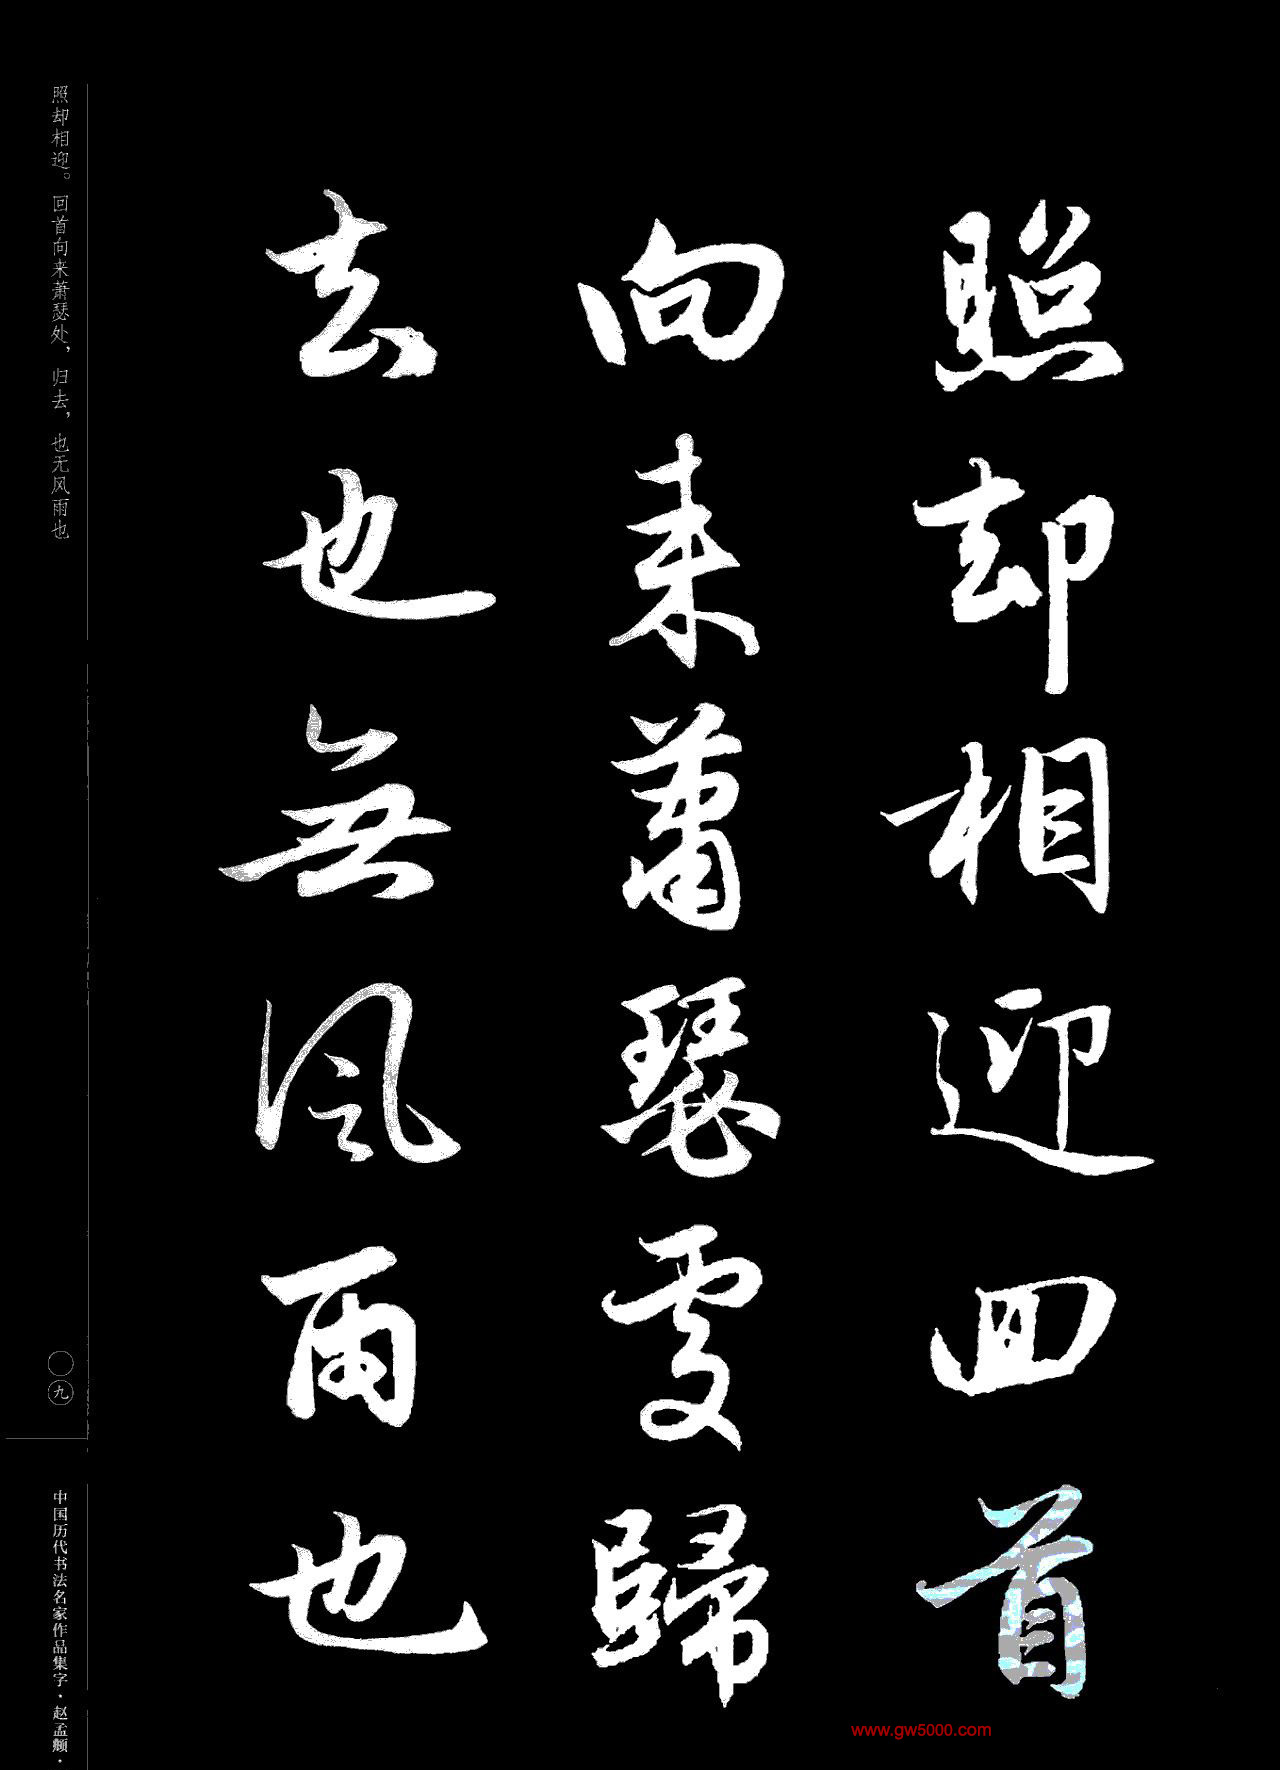 照却相迎回首
向来蕭瑟處歸
去也無風雨也
照却相迎。回首向来萧瑟处，归去，也无风雨也
〇九
中国历代书法名家作品集字·赵孟頫·
www.gw5000.com